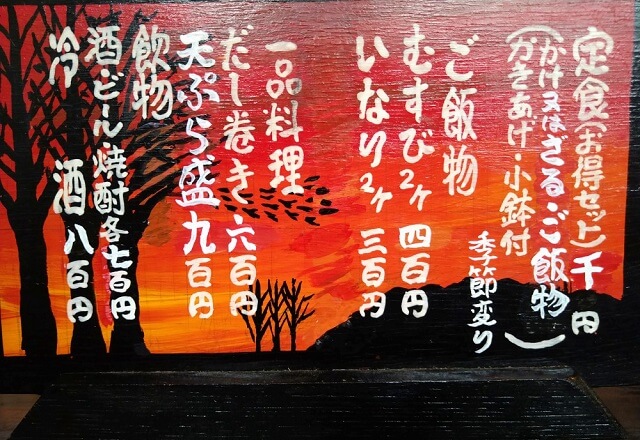 定食(お得セット)千円
(かけ又はざる・ご飯物
かきあげ・小鉢付)
季節変り
ご飯物
むすび2ヶ 四百円
いなり2ヶ 三百円
一品料理
だし巻き 六百円
天ぷら盛 九百円
飲物
酒・ビール・焼酎各七百円
冷酒 八百円